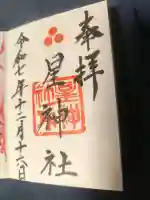 奉拝
星神社
令和七年十二月十六日